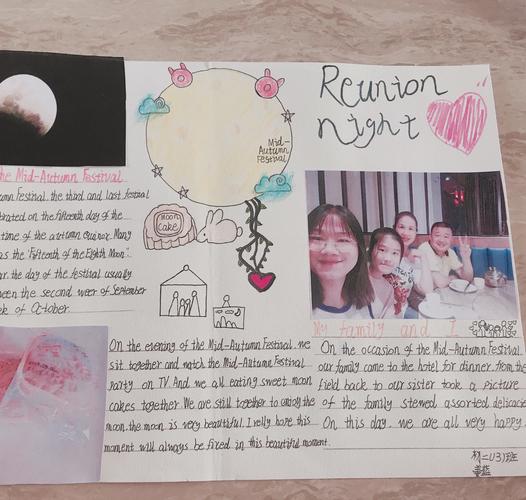 Reunion
night
Mid-
Autumn
Festival
moon
cake
he Mid-Autumn Festival
umn Festival, the third and last festival
brated on the fifteenth day of the
time of the autumn equinox. Many
as the "Fifteenth of the Eighth Moon".
ar. the day of the festival usually
ween the second week of September
ek of October.
On the evening of the Mid-Autumn Festival. we
sit together and watch the Mid-Autumn Festival
party on TV. And we all eating sweet moon
cakes together. We are still together to enjoy the
moon. the moon is very beautiful. I relly hope this
moment will always be fixed in this beautiful moment.
My family and I
On the occasion of the Mid-Autumn Festival.
our family come to the hotel for dinner. from the
field back to our sister took a picture
of the family stewed assorted delicacie
On this day. we are all very happy.